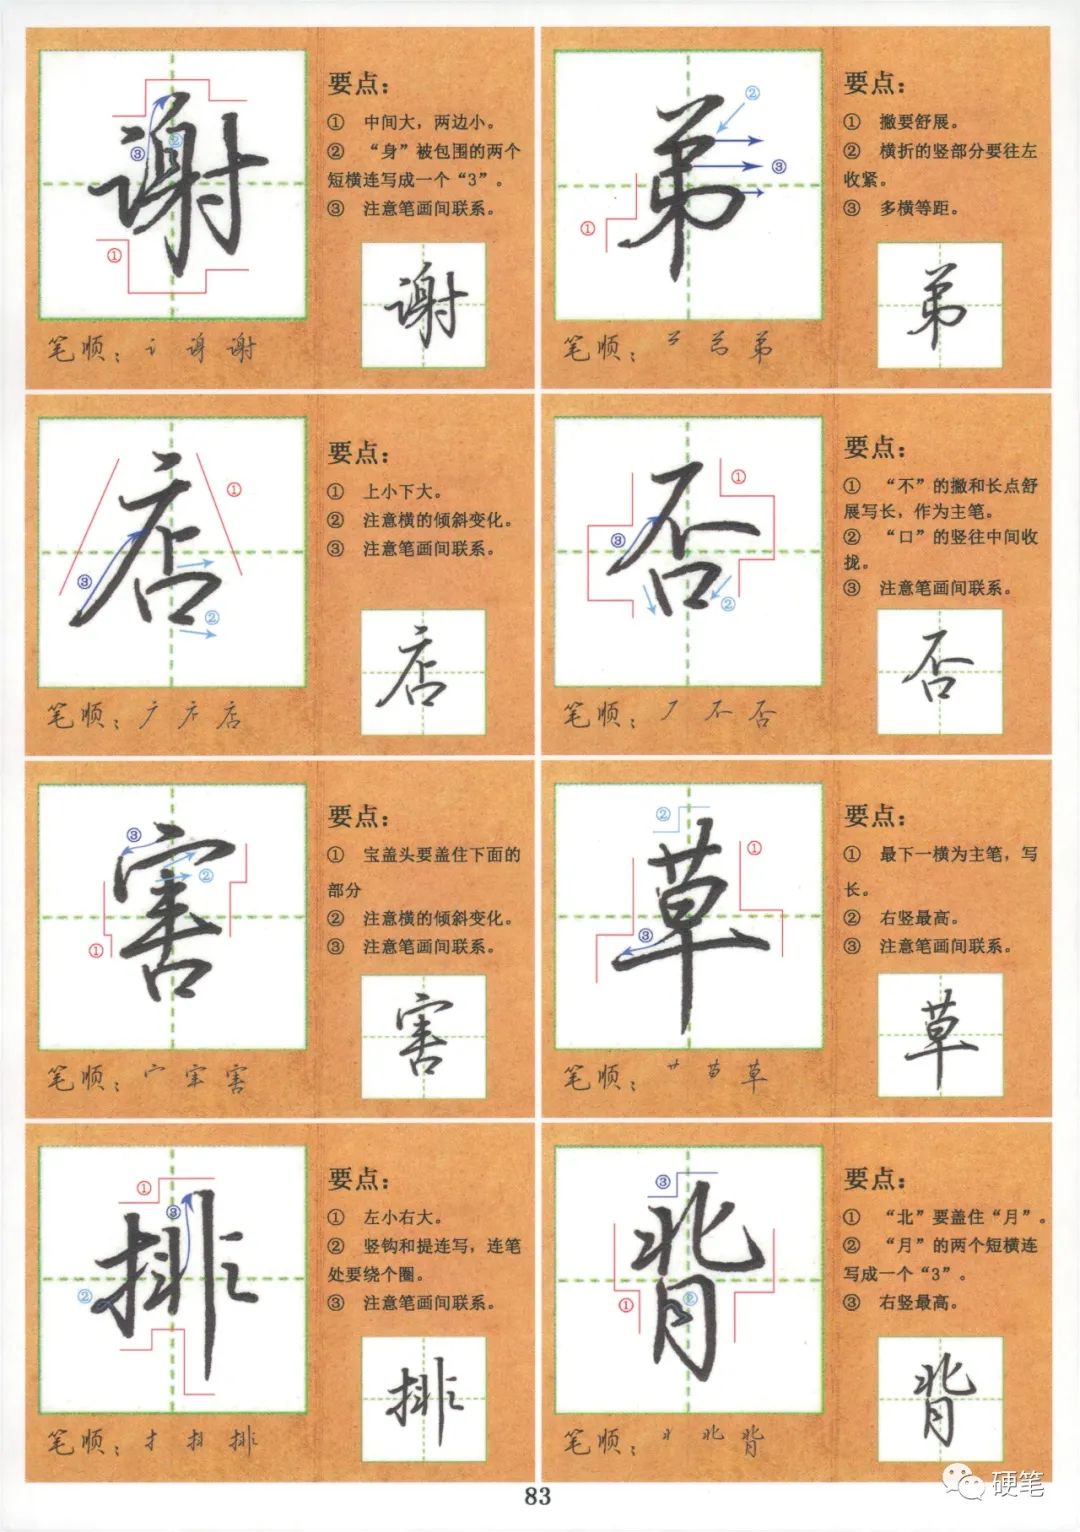 谢
要点：
① 中间大，两边小。
② “身”被包围的两个
短横连写成一个“3”。
③ 注意笔画间联系。
谢
笔顺：讠 谢
弟
要点：
① 撇要舒展。
② 横折的竖部分要往左
收紧。
③ 多横等距。
弟
笔顺：弟
店
要点：
① 上小下大。
② 注意横的倾斜变化。
③ 注意笔画间联系。
店
笔顺：广 店
否
要点：
① “不”的撇和长点舒
展写长，作为主笔。
② “口”的竖往中间收
拢。
③ 注意笔画间联系。
否
笔顺：不 否
害
要点：
① 宝盖头要盖住下面的
部分
② 注意横的倾斜变化。
③ 注意笔画间联系。
害
笔顺：宀 害
草
要点：
① 最下一横为主笔，写
长。
② 右竖最高。
③ 注意笔画间联系。
草
笔顺：艹 苩 草
排
要点：
① 左小右大。
② 竖钩和提连写，连笔
处要绕个圈。
③ 注意笔画间联系。
排
笔顺：扌 排
背
要点：
① “北”要盖住“月”。
② “月”的两个短横连
写成一个“3”。
③ 右竖最高。
背
笔顺：北 背
83
硬笔